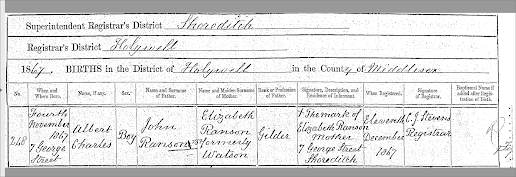 Superintendent Registrar's District Shoreditch
Registrar's District Holywell
1867. BIRTHS in the District of Holywell in the County of Middlesex
No. When and Where Born. Name, if any. Sex. Name and Surname of Father. Name and Maiden Surname of Mother. Rank or Profession of Father. Signature, Description, and Residence of Informant. When Registered. Signature of Registrar. Baptismal Name if added after Registration of Birth.
248 Fourth November 1867 7 George Street
Albert Charles
Boy
John Ranson
Elizabeth Ranson formerly Watson
Gilder
X The mark of Elizabeth Ranson Mother 7 George Street Shoreditch
Eleventh December 1867
C J Stevens Registrar